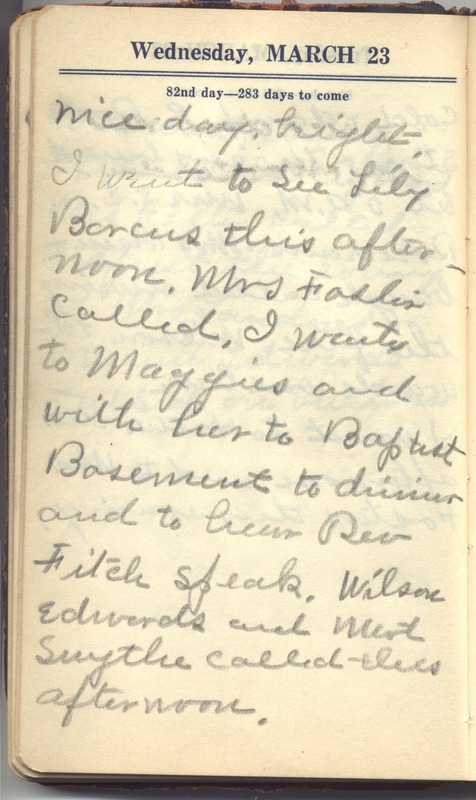 Wednesday, MARCH 23
82nd day—283 days to come
nice day, bright,
I went to see Lily
Barcus this after-
noon. Mrs Foslin
called. I went
to Maggies and
with her to Baptist
Basement to dinner
and to hear Rev
Fitch speak. Wilson
Edwards and Mert
Smythe called this
afternoon.